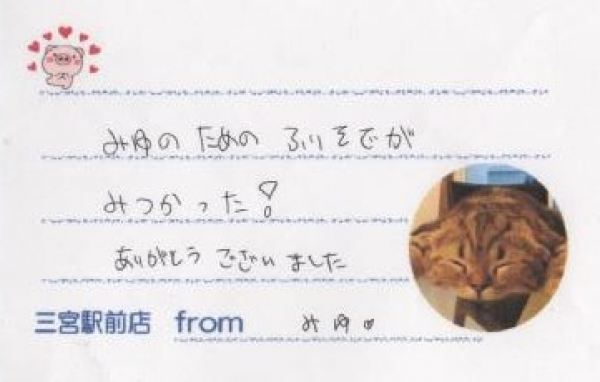 みゆのための ふりそでが
みつかった!
ありがとうございました
三宮駅前店 from みゆ♥